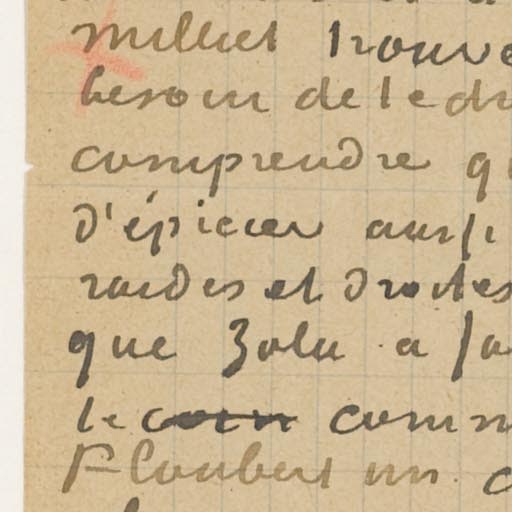 milliet trouve
besoin de le dr
comprendre qu
d'épicier aussi
raides et droites
que Zola a fa
le coin comm
Flaubert un c